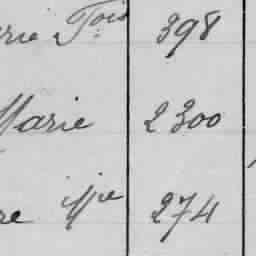 rie Fois 398
Marie 2300
re Mie 274